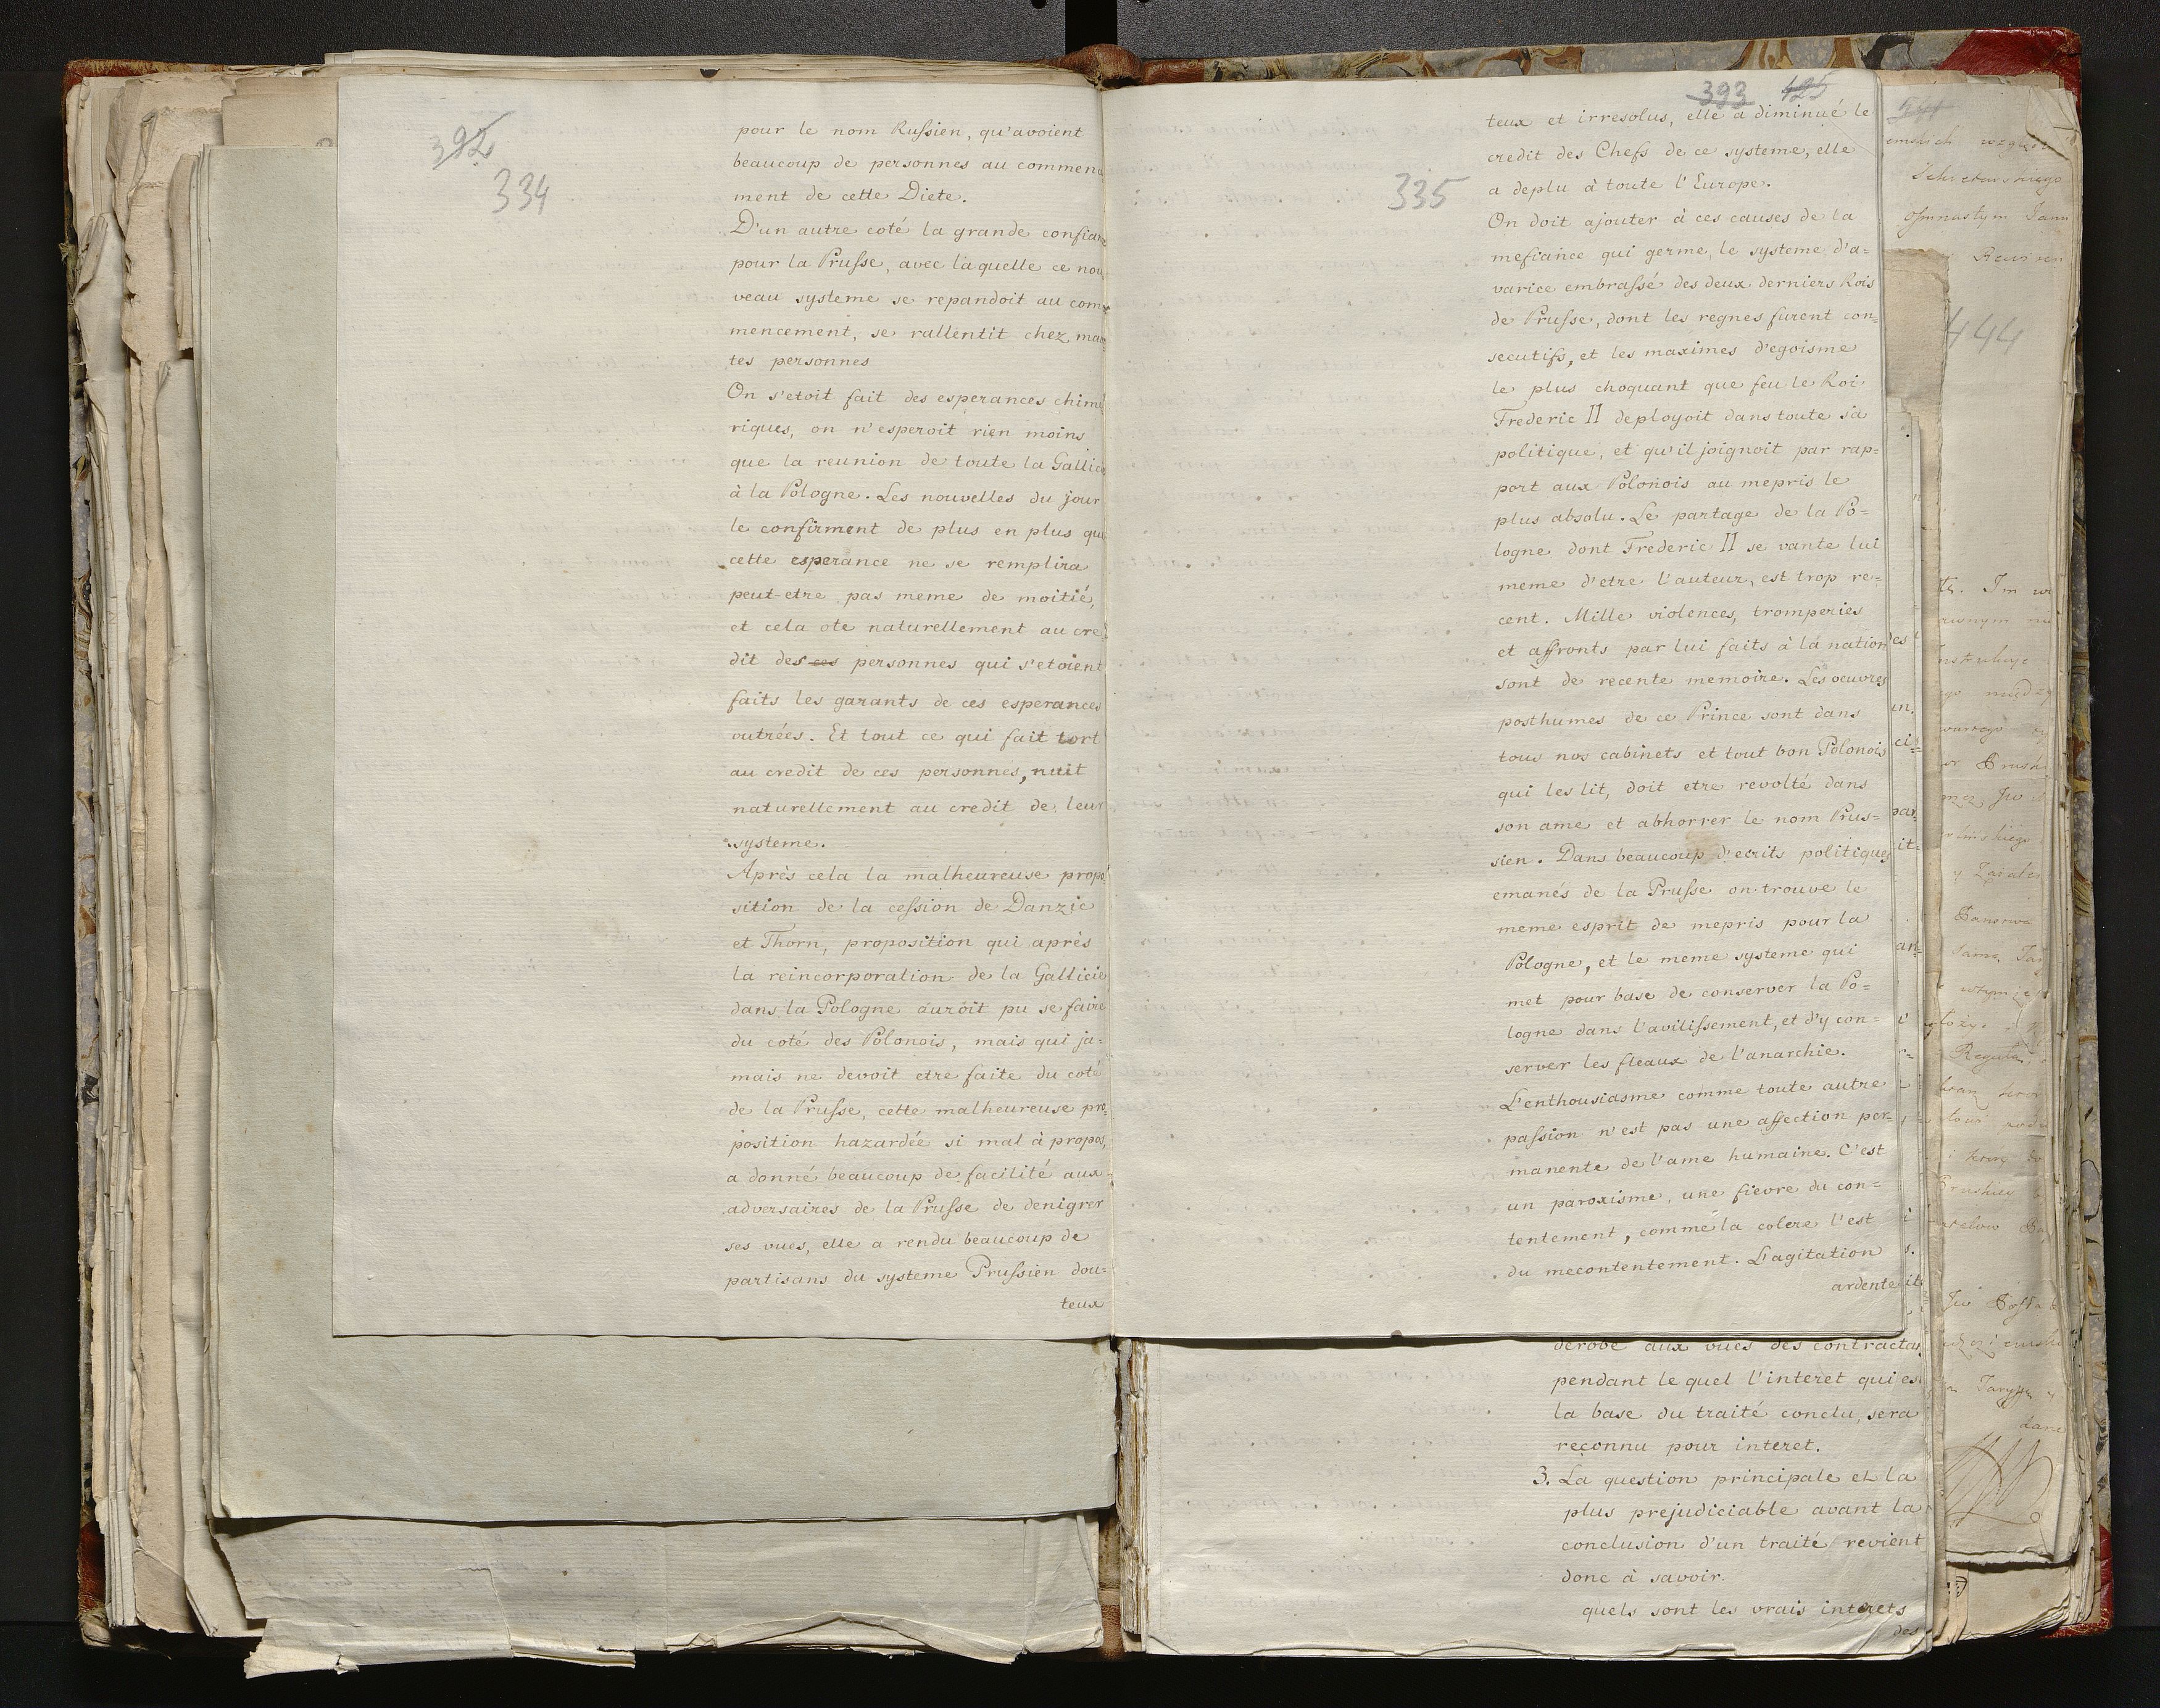 392
334
pour le nom Russien, qu'avoient
beaucoup de personnes au commen
ment de cette Diete.
D'un autre coté la grande confian
pour la Prusse, avec laquelle ce nou
veau systeme se repandoit au com
mencement, se rallentit chez main
tes personnes
On s'etoit fait des esperances chimé
riques, on n'esperoit rien moins
que la reunion de toute la Gallicie
à la Pologne. Les nouvelles du jour
le confirment de plus en plus que
cette esperance ne se remplira
peut-etre pas meme de moitié,
et cela ote naturellement au cre
dit des ces personnes qui s'etoient
faits les garants de ces esperances
outrées. Et tout ce qui fait tort
au credit de ces personnes, nuit
naturellement au credit de leur
systeme.
Après cela la malheureuse propo
sition de la cession de Danzic
et Thorn, proposition qui après
la reincorporation de la Gallicie
dans la Pologne auroit pu se faire
du coté des Polonois, mais qui ja=
mais ne devoit etre faite du coté
de la Prusse, cette malheureuse pro=
position hazardée si mal à propos,
a donné beaucoup de facilité aux
adversaires de la Prusse de denigrer
ses vues, elle a rendu beaucoup de
partisans du systeme Prussien dou=
teux
393 425
335
teux et irresolus, elle a diminué le
credit des Chefs de ce systeme, elle
a deplu à toute l'Europe.
On doit ajouter à ces causes de la
mefiance qui germe, le systeme d'a=
varice embrassé des deux derniers Rois
de Prusse, dont les regnes furent con=
secutifs, et les maximes d'egoisme
le plus choquant que feu le Roi
Frederic II deployoit dans toute sa
politique, et qu'il joignoit par rap=
port aux Polonois au mepris le
plus absolu. Le partage de la Po=
logne dont Frederic II se vante lui
meme d'etre l'auteur, est trop re=
cent. Mille violences, tromperies
et affronts par lui faits à la nation
sont de recente memoire. Les oeuvres
posthumes de ce Prince sont dans
tous nos cabinets et tout bon Polonois
qui les lit, doit etre revolté dans
son ame et abhorrer le nom Prus=
sien. Dans beaucoup d'ecrits politiques
emanés de la Prusse on trouve le
meme esprit de mepris pour la
Pologne, et le meme systeme qui
met pour base de conserver la Po=
logne dans l'avilissement, et d'y con=
server les fleaux de l'anarchie.
L'enthousiasme comme toute autre
passion n'est pas une affection per=
manente de l'ame humaine. C'est
un paroxisme, une fievre du con=
tentement, comme la colere l'est
du mecontentement. L'agitation
ardente
derobe aux vues des contractas
pendant le quel l'interet qui es
la base du traité conclu, sera
reconnu pour interet.
3. La question principale et la
plus prejudiciable avant la
conclusion d'un traité revient
donc à savoir.
quels sont les vrais interets
des
444